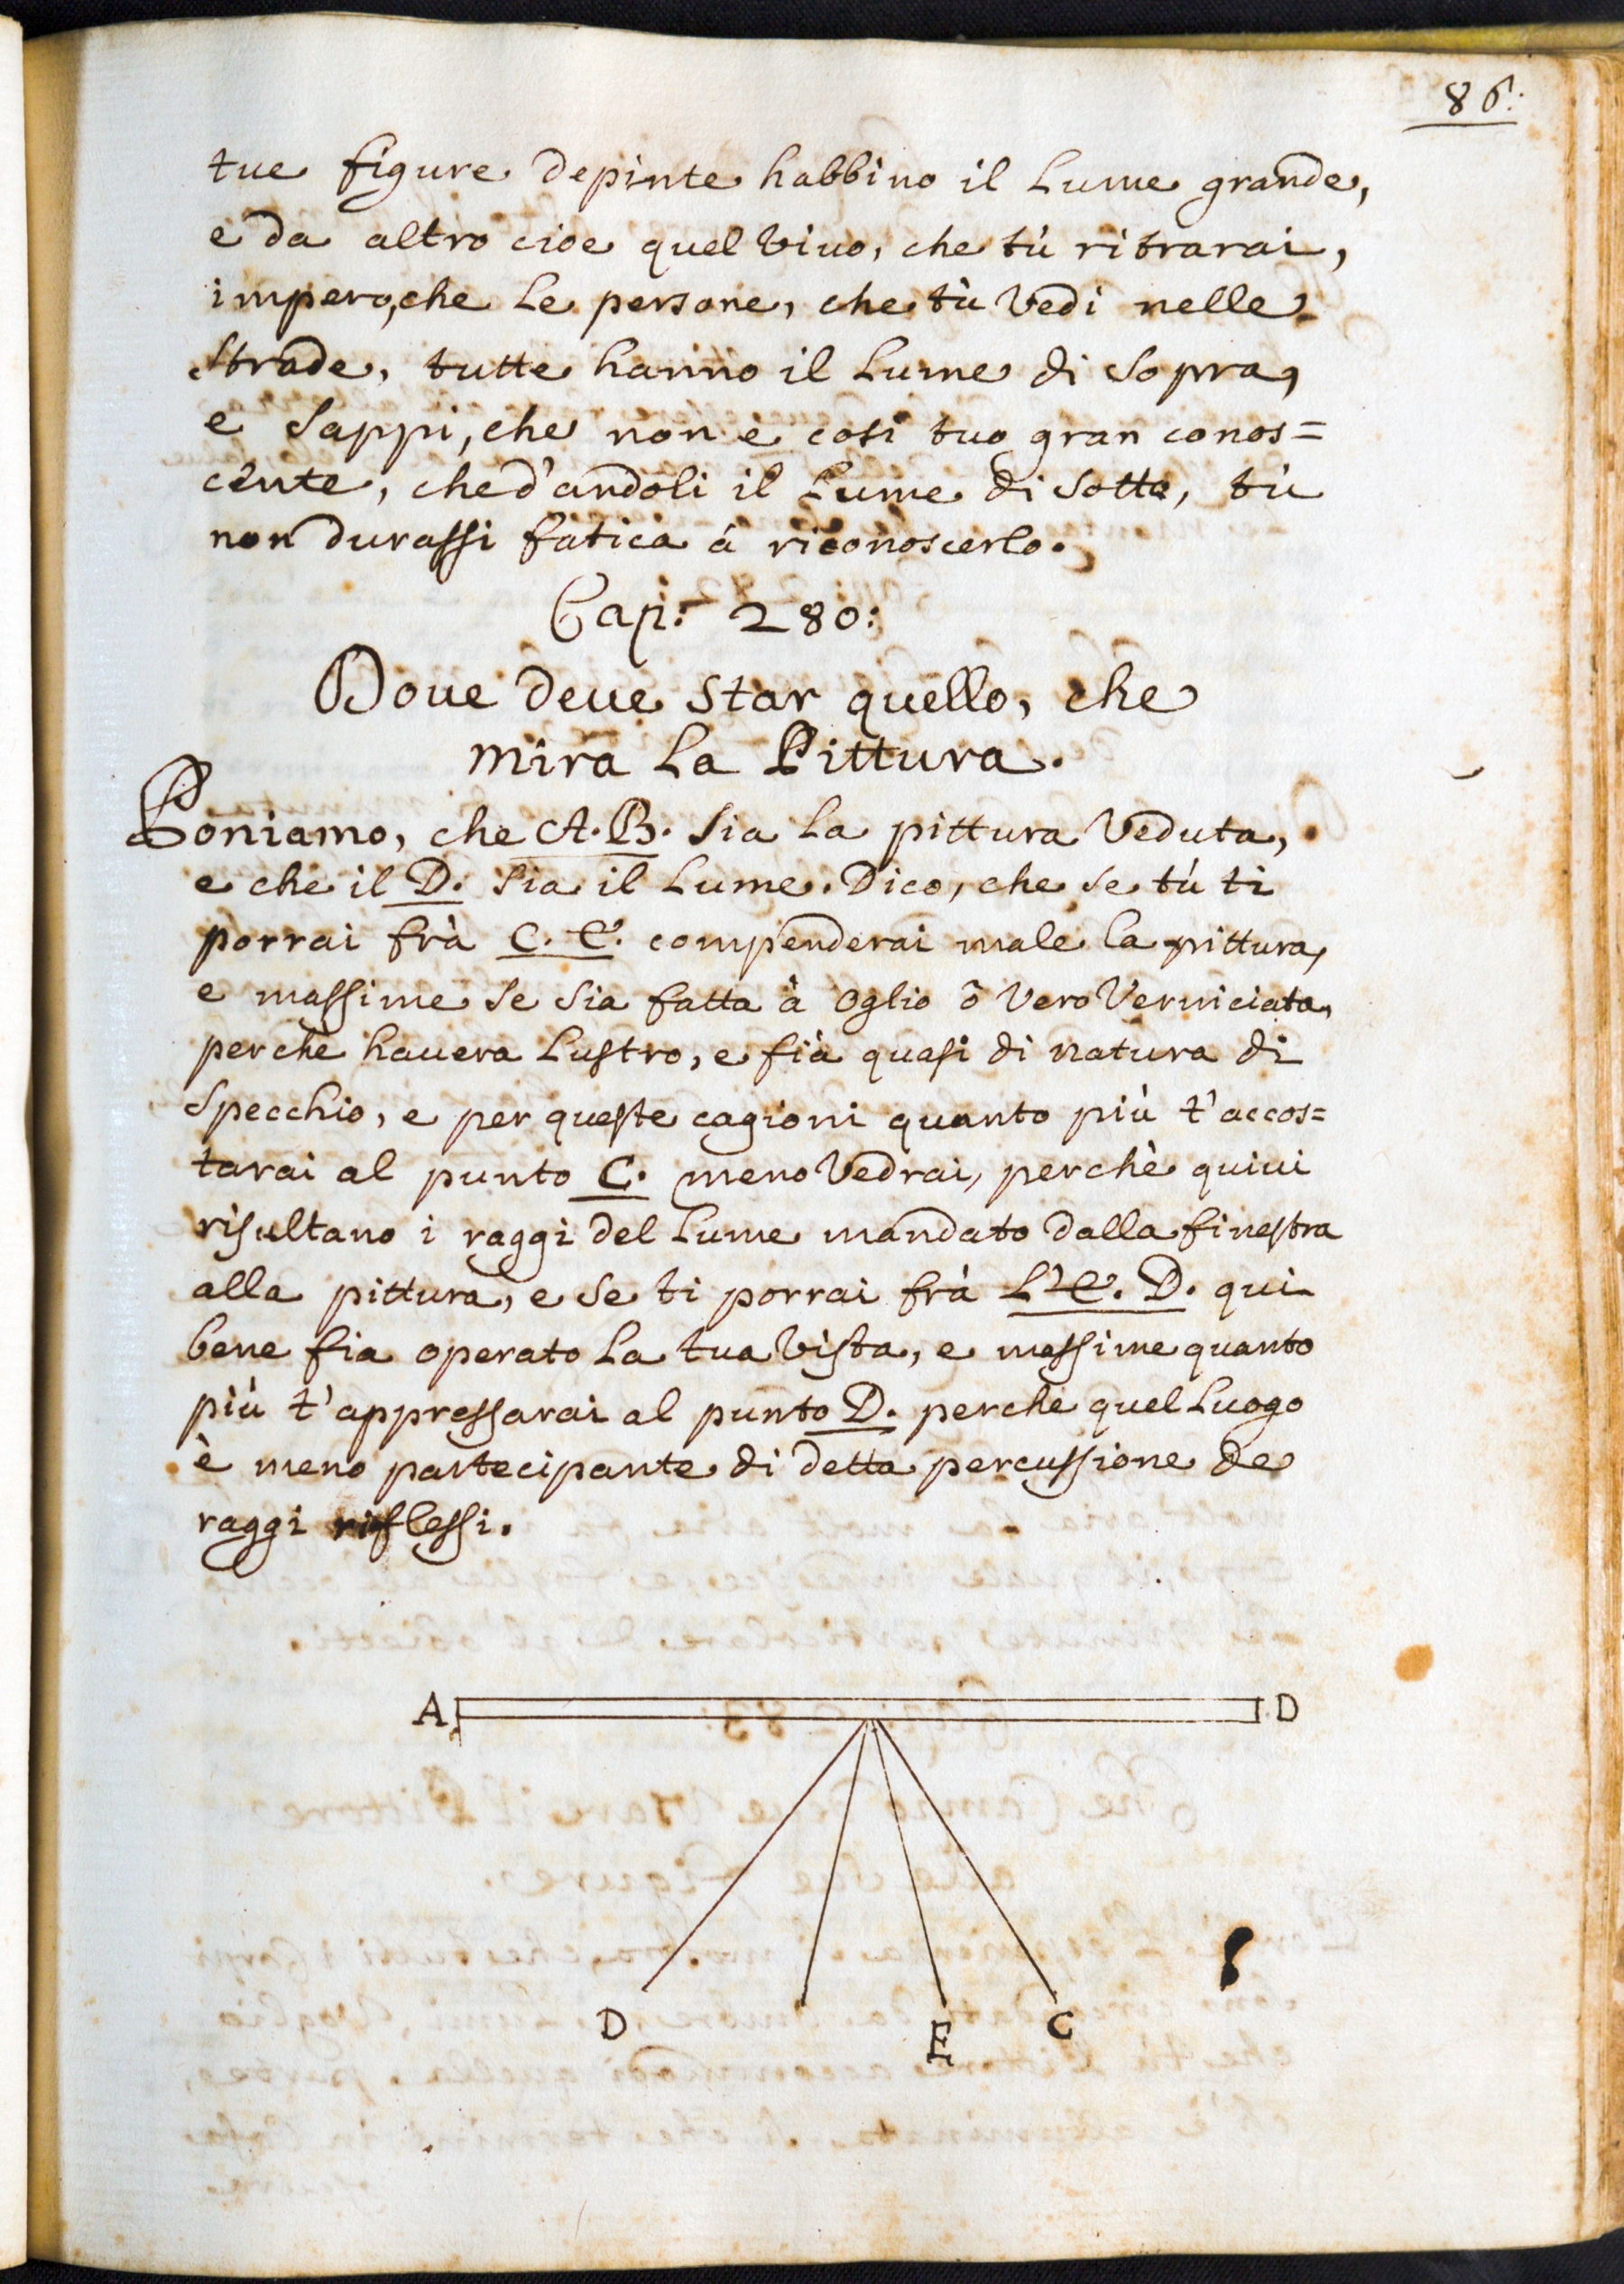 86.
tue figure depinte habbino il Lume grande,
e da altro cioe quel Viuo, che tù ritrarai,
impero,che Le persone, che tù Vedi nelle
strade, tutte hanno il Lume di sopra,
e sappi, che non è così tuo gran conos=
cente, che d'andoli il Lume di sotto, tù
non durassi fatica à riconoscerlo.
Cap: 280:
Doue deue star quello, che
mira La Pittura.
Poniamo, che A.B. sia La pittura Veduta,
e che il D. sia il Lume. Dico, che se tù ti
porrai frà C. E. compenderai male la pittura,
e massime se sia fatta à oglio ò Vero Verniciata,
perche hauera Lustro, e fià quasi di natura di
specchio, e per queste cagioni quanto più t'accos=
tarai al punto C. meno Vedrai, perchè quiui
risultano i raggi del Lume mandato dalla finestra
alla pittura, e se ti porrai frà L'E. D. qui
bene fia operato La tua Vista, e massime quanto
più t'appressarai al punto D. perche quel Luogo
è meno partecipante di detta percussione de
raggi riflessi.
A D
D E C